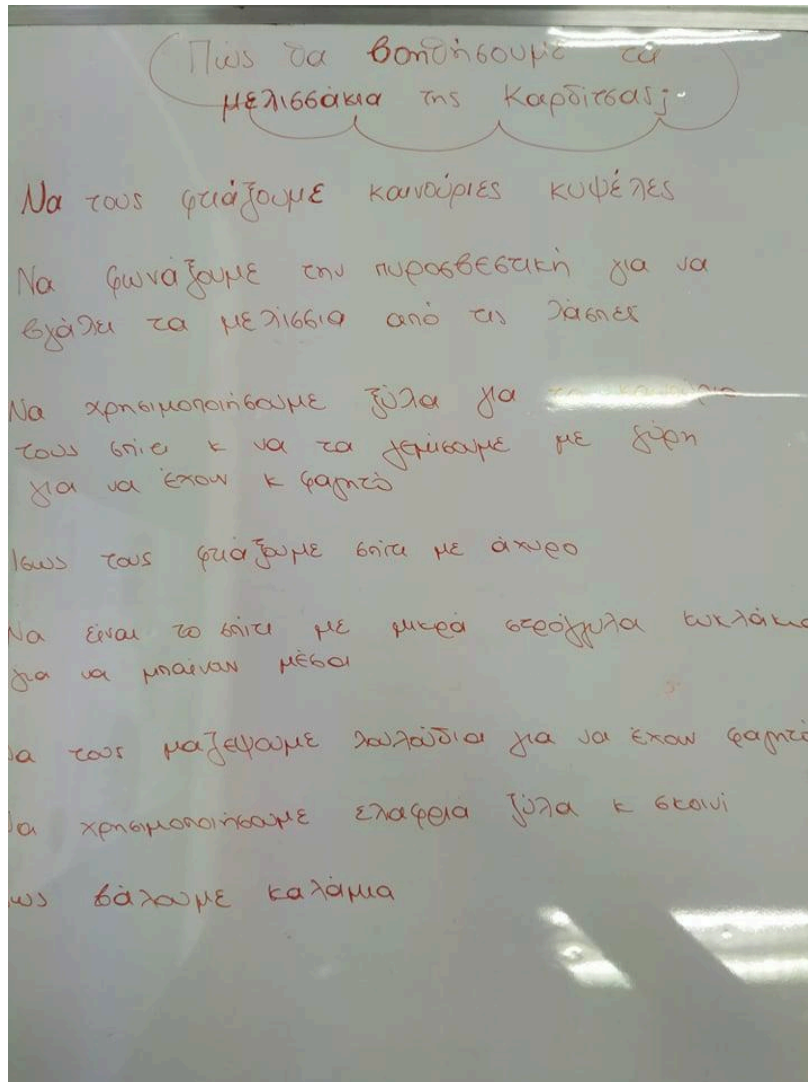 Πώς θα βοηθήσουμε τα
μελισσάκια της Καρδίτσας;
Να τους φτιάξουμε καινούριες κυψέλες
Να φωνάξουμε την πυροσβεστική για να
βγάλει τα μελίσσια από τις λάσπες
Να χρησιμοποιήσουμε ξύλα για
τους σπίτι κ να τα γεμίσουμε με γύρη
για να έχουν κ φαγητό
Ισως τους φτιάξουμε σπίτι με άχυρο
Να είναι το σπίτι με μικρά στρόγγυλα κυκλάκια
για να μπαίναν μέσα
α τους μαζεψουμε λουλούδια για να έχουν φαγητό
α χρησιμοποιήσουμε ελαφρια ξύλα κ σκοινί
ως βάλουμε καλάμια